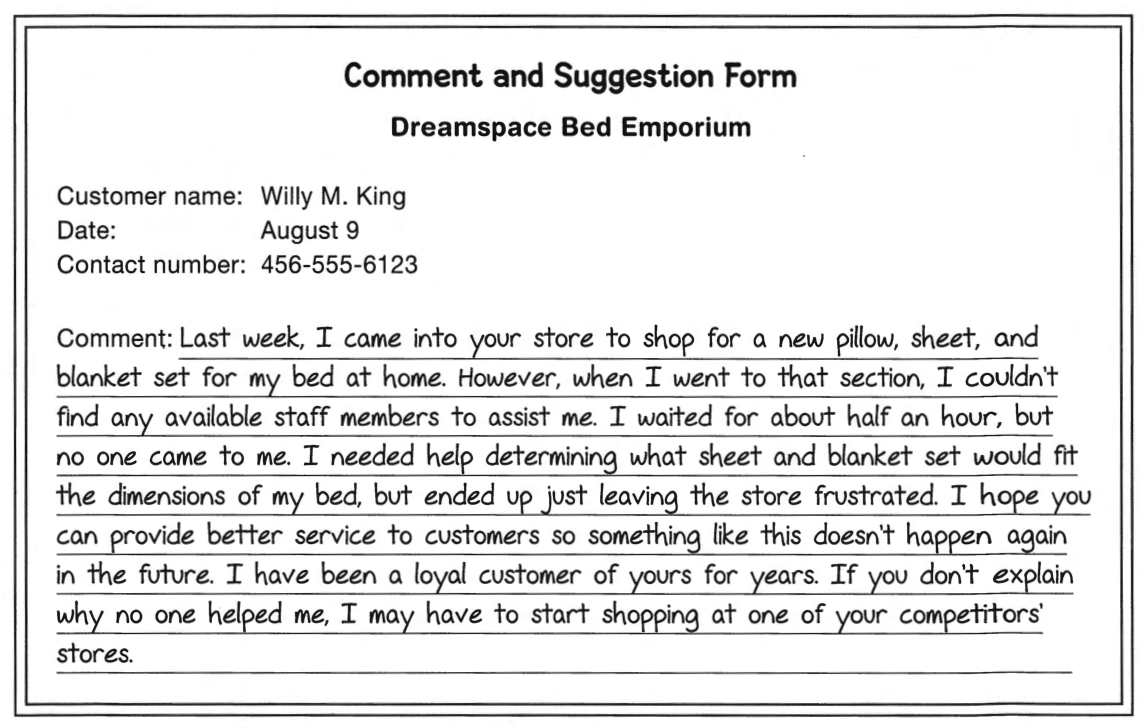 Comment and Suggestion Form
Dreamspace Bed Emporium
Customer name: Willy M. King
Date: August 9
Contact number: 456-555-6123
Comment: Last week, I came into your store to shop for a new pillow, sheet, and
blanket set for my bed at home. However, when I went to that section, I couldn't
find any available staff members to assist me. I waited for about half an hour, but
no one came to me. I needed help determining what sheet and blanket set would fit
the dimensions of my bed, but ended up just leaving the store frustrated. I hope you
can provide better service to customers so something like this doesn't happen again
in the future. I have been a loyal customer of yours for years. If you don't explain
why no one helped me, I may have to start shopping at one of your competitors'
stores.